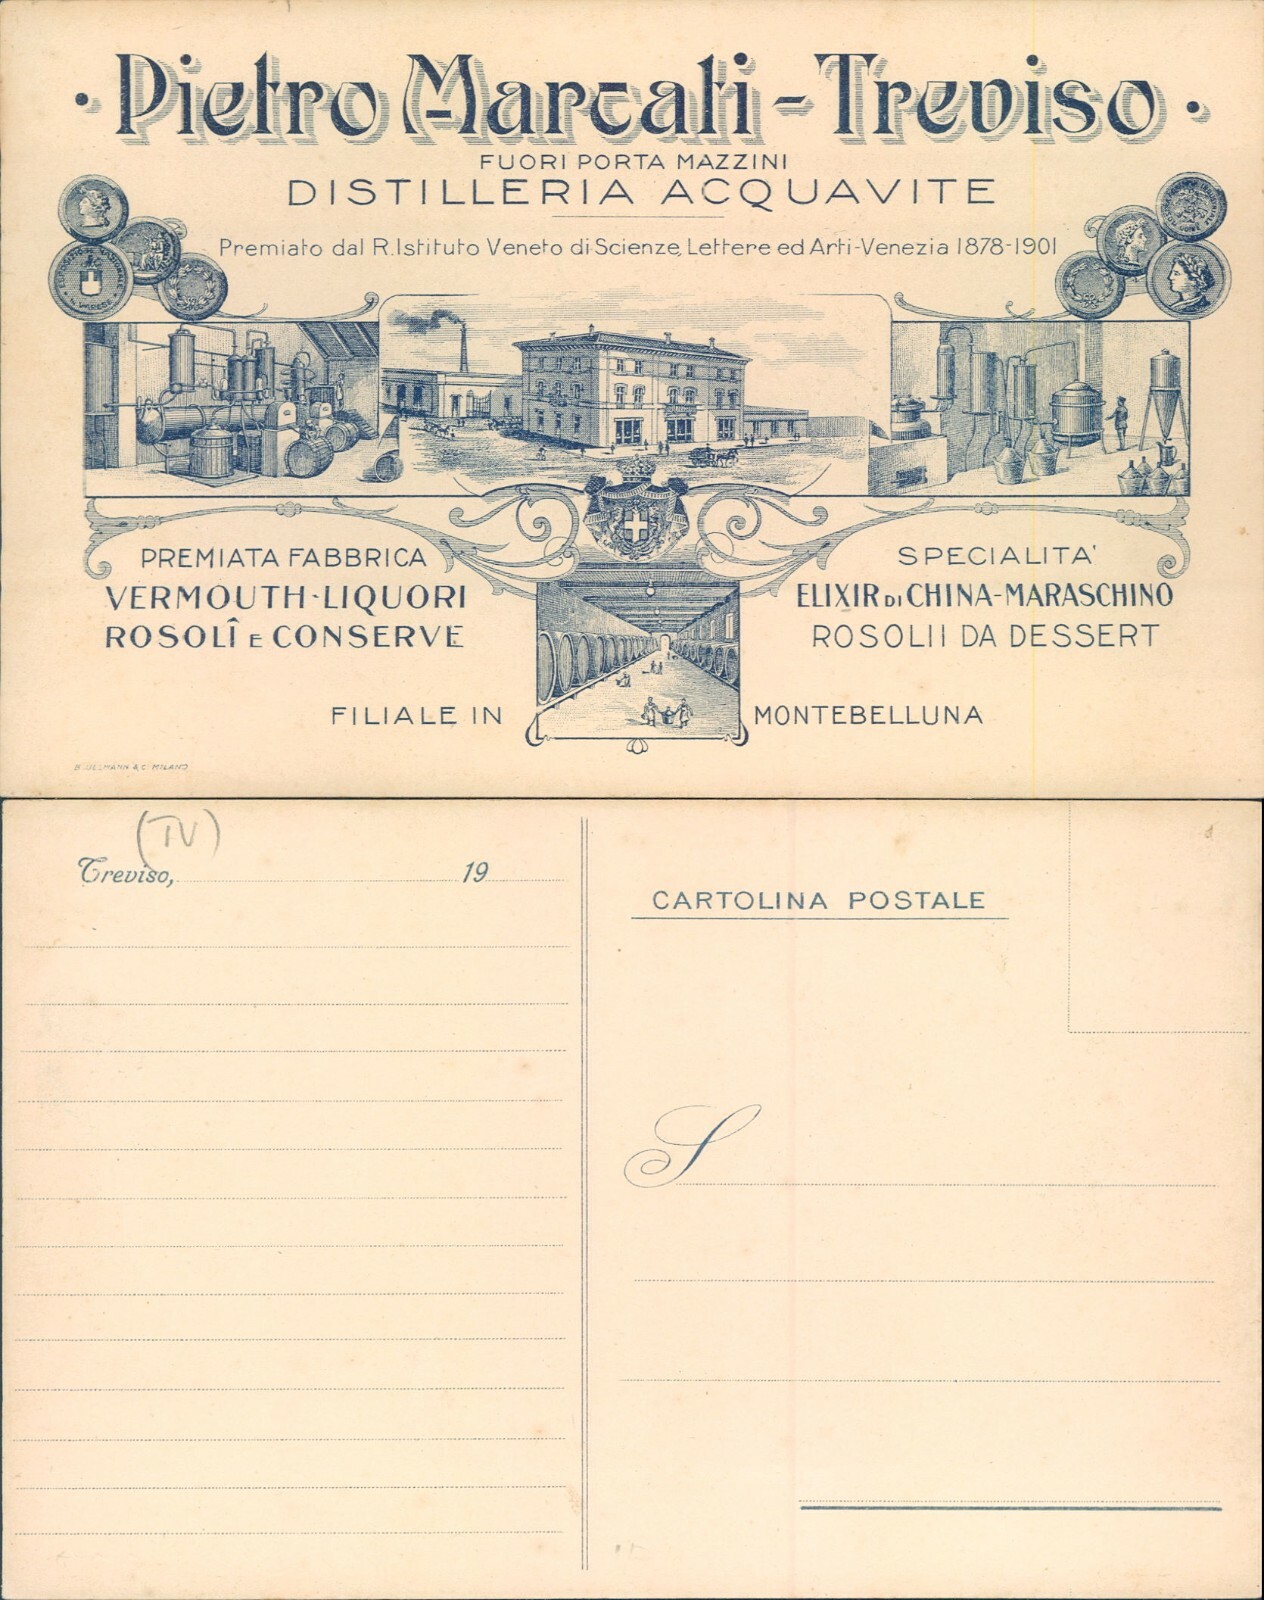 · Pietro Marcati - Treviso ·
FUORI PORTA MAZZINI
DISTILLERIA ACQUAVITE
Premiato dal R. Istituto Veneto di Scienze, Lettere ed Arti - Venezia 1878-1901
PREMIATA FABBRICA
VERMOUTH - LIQUORI
ROSOLÎ E CONSERVE
SPECIALITA'
ELIXIR DI CHINA - MARASCHINO
ROSOLII DA DESSERT
FILIALE IN MONTEBELLUNA
& C. MILANO
(TV)
Treviso, 19
CARTOLINA POSTALE
S